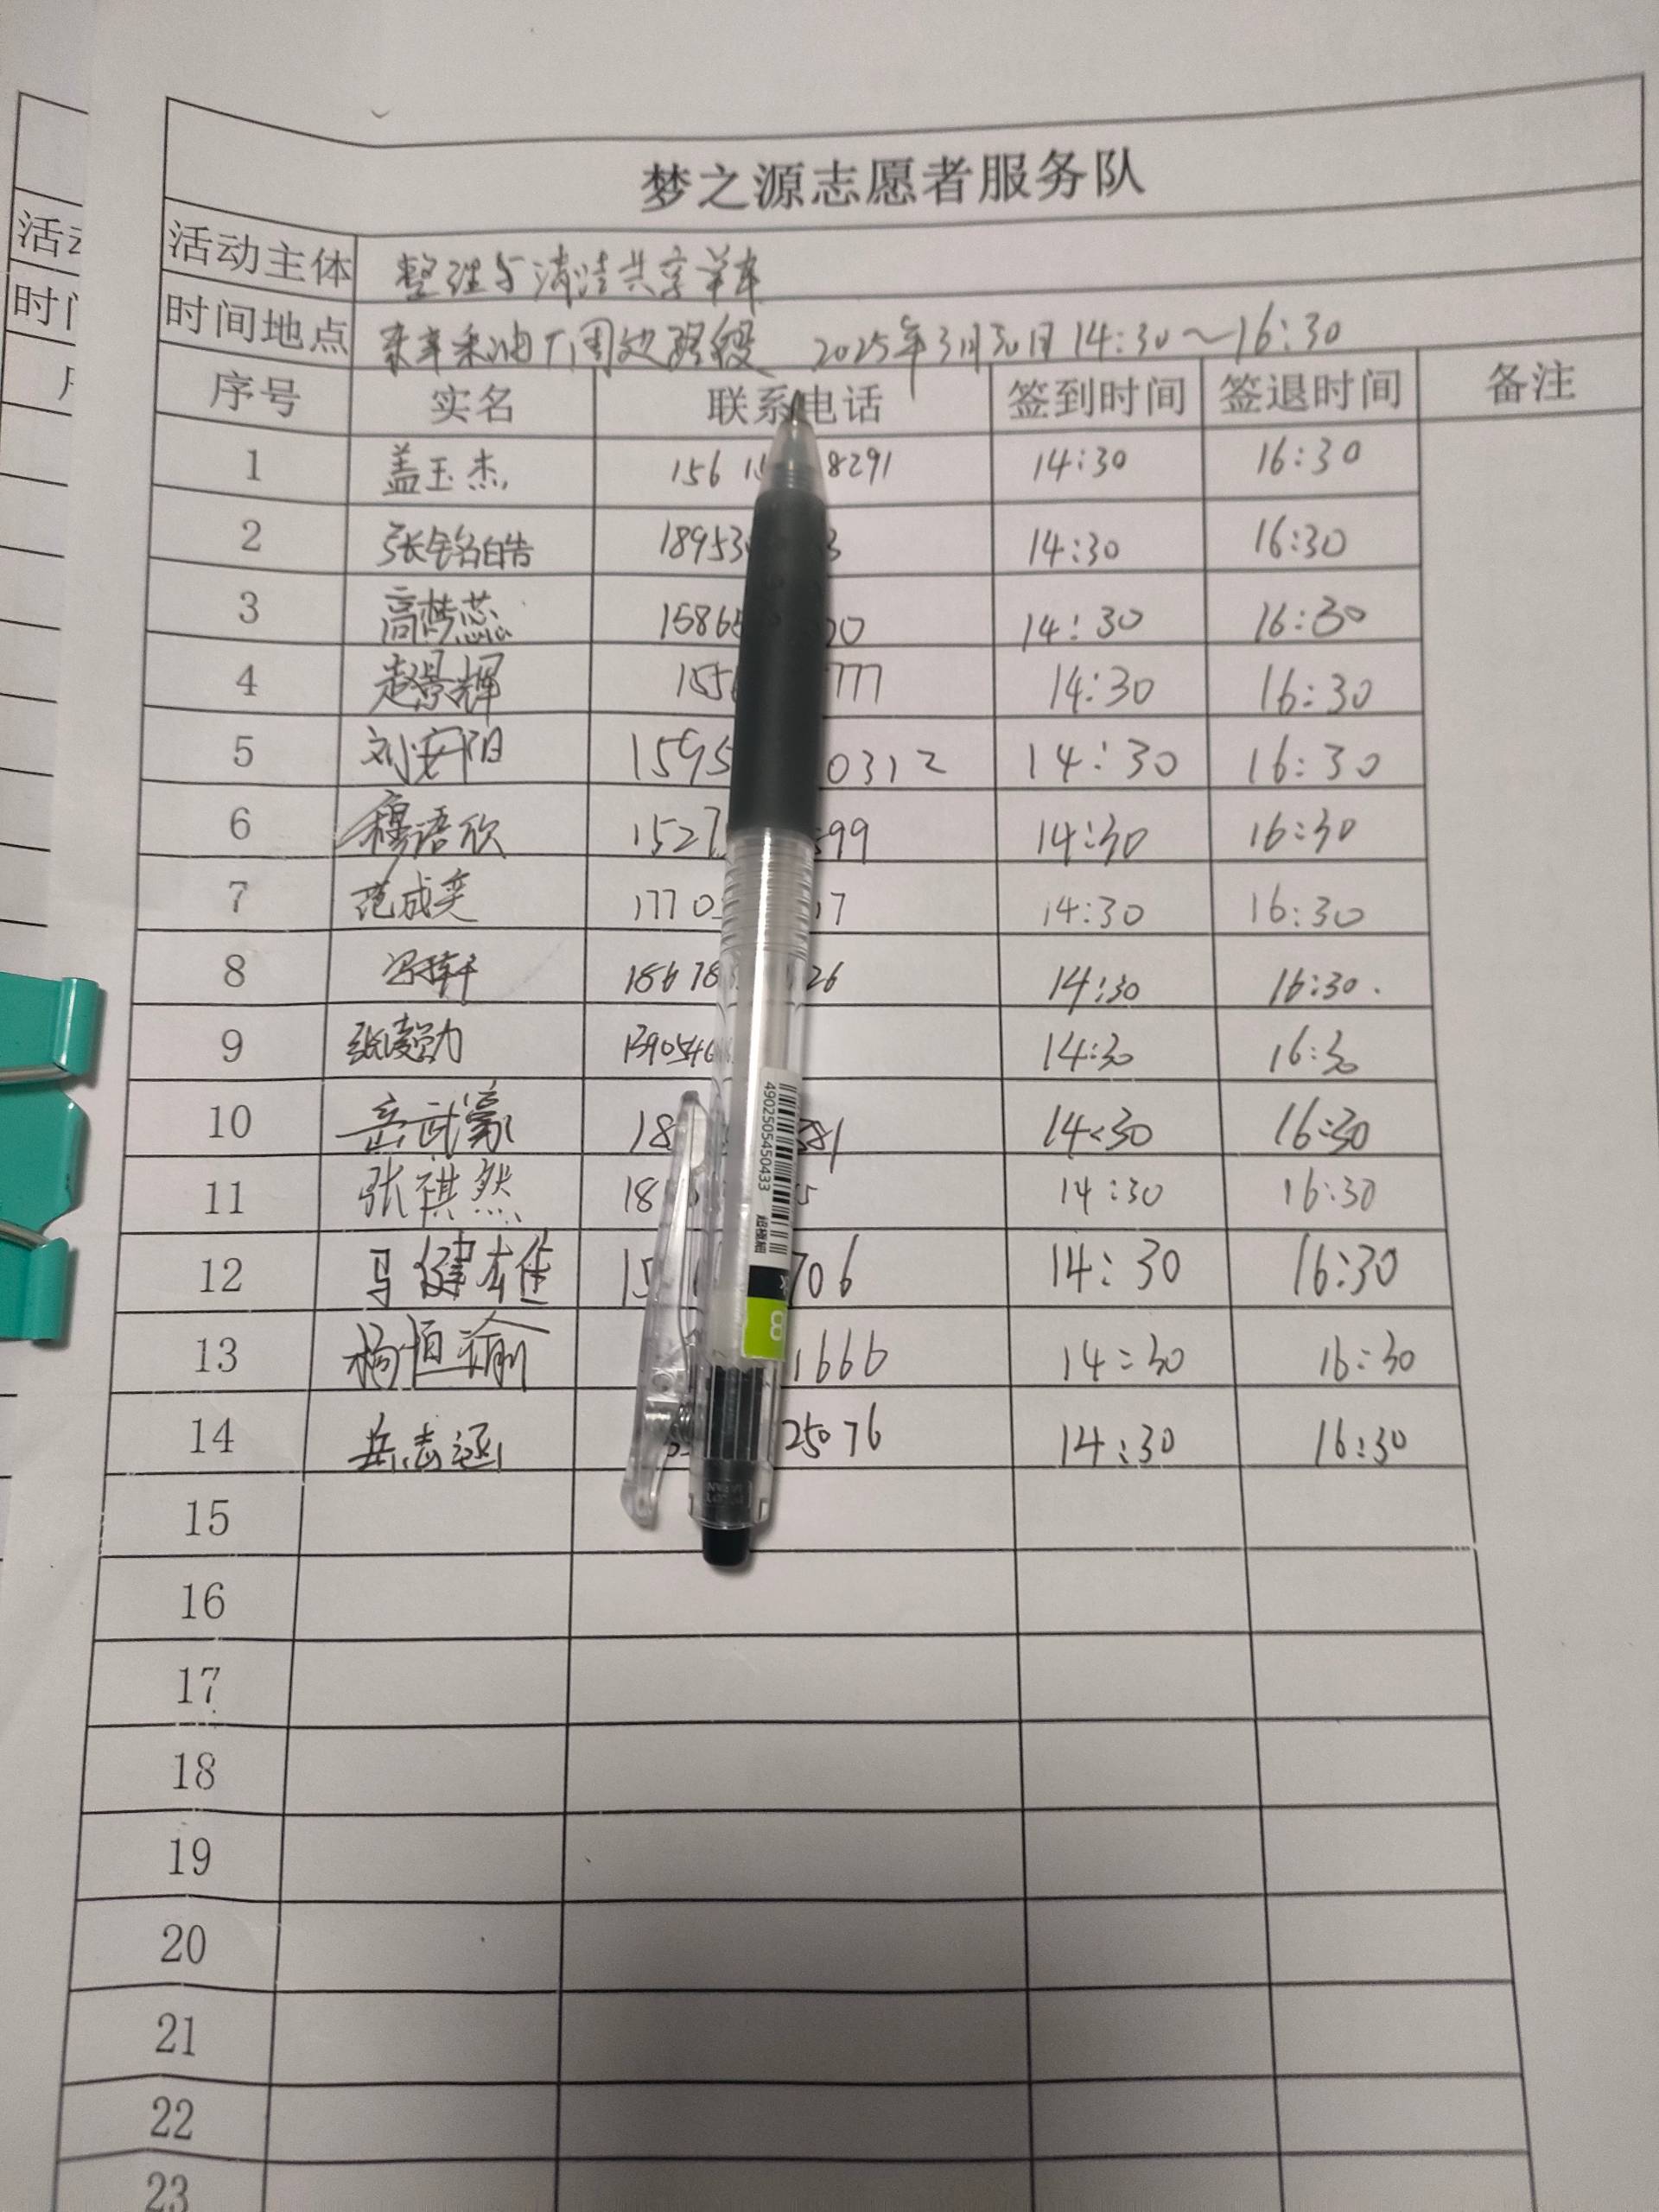 梦之源志愿者服务队
活动主体 整理与清洁共享单车
时间地点 周边路段 2025年3月30日14:30～16:30
序号 实名 联系电话 签到时间 签退时间 备注
1 盖玉杰 156 8291 14:30 16:30
2 张铭皓 18953 3 14:30 16:30
3 高梦蕊 1586 0 14:30 16:30
4 赵景辉 155 777 14:30 16:30
5 刘安阳 1595 0312 14:30 16:30
6 穆语欣 1527 599 14:30 16:30
7 范成奕 1770 17 14:30 16:30
8 18678 26 14:30 16:30.
9 139054 14:30 16:30
10 岳武豪 18 581 14:30 16:30
11 张祺然 18 5 14:30 16:30
12 马健雄 15 706 14:30 16:30
13 杨恒瑜 1666 14:30 16:30
14 岳志涵 25076 14:30 16:30
15
16
17
18
19
20
21
22
23
4902505450433